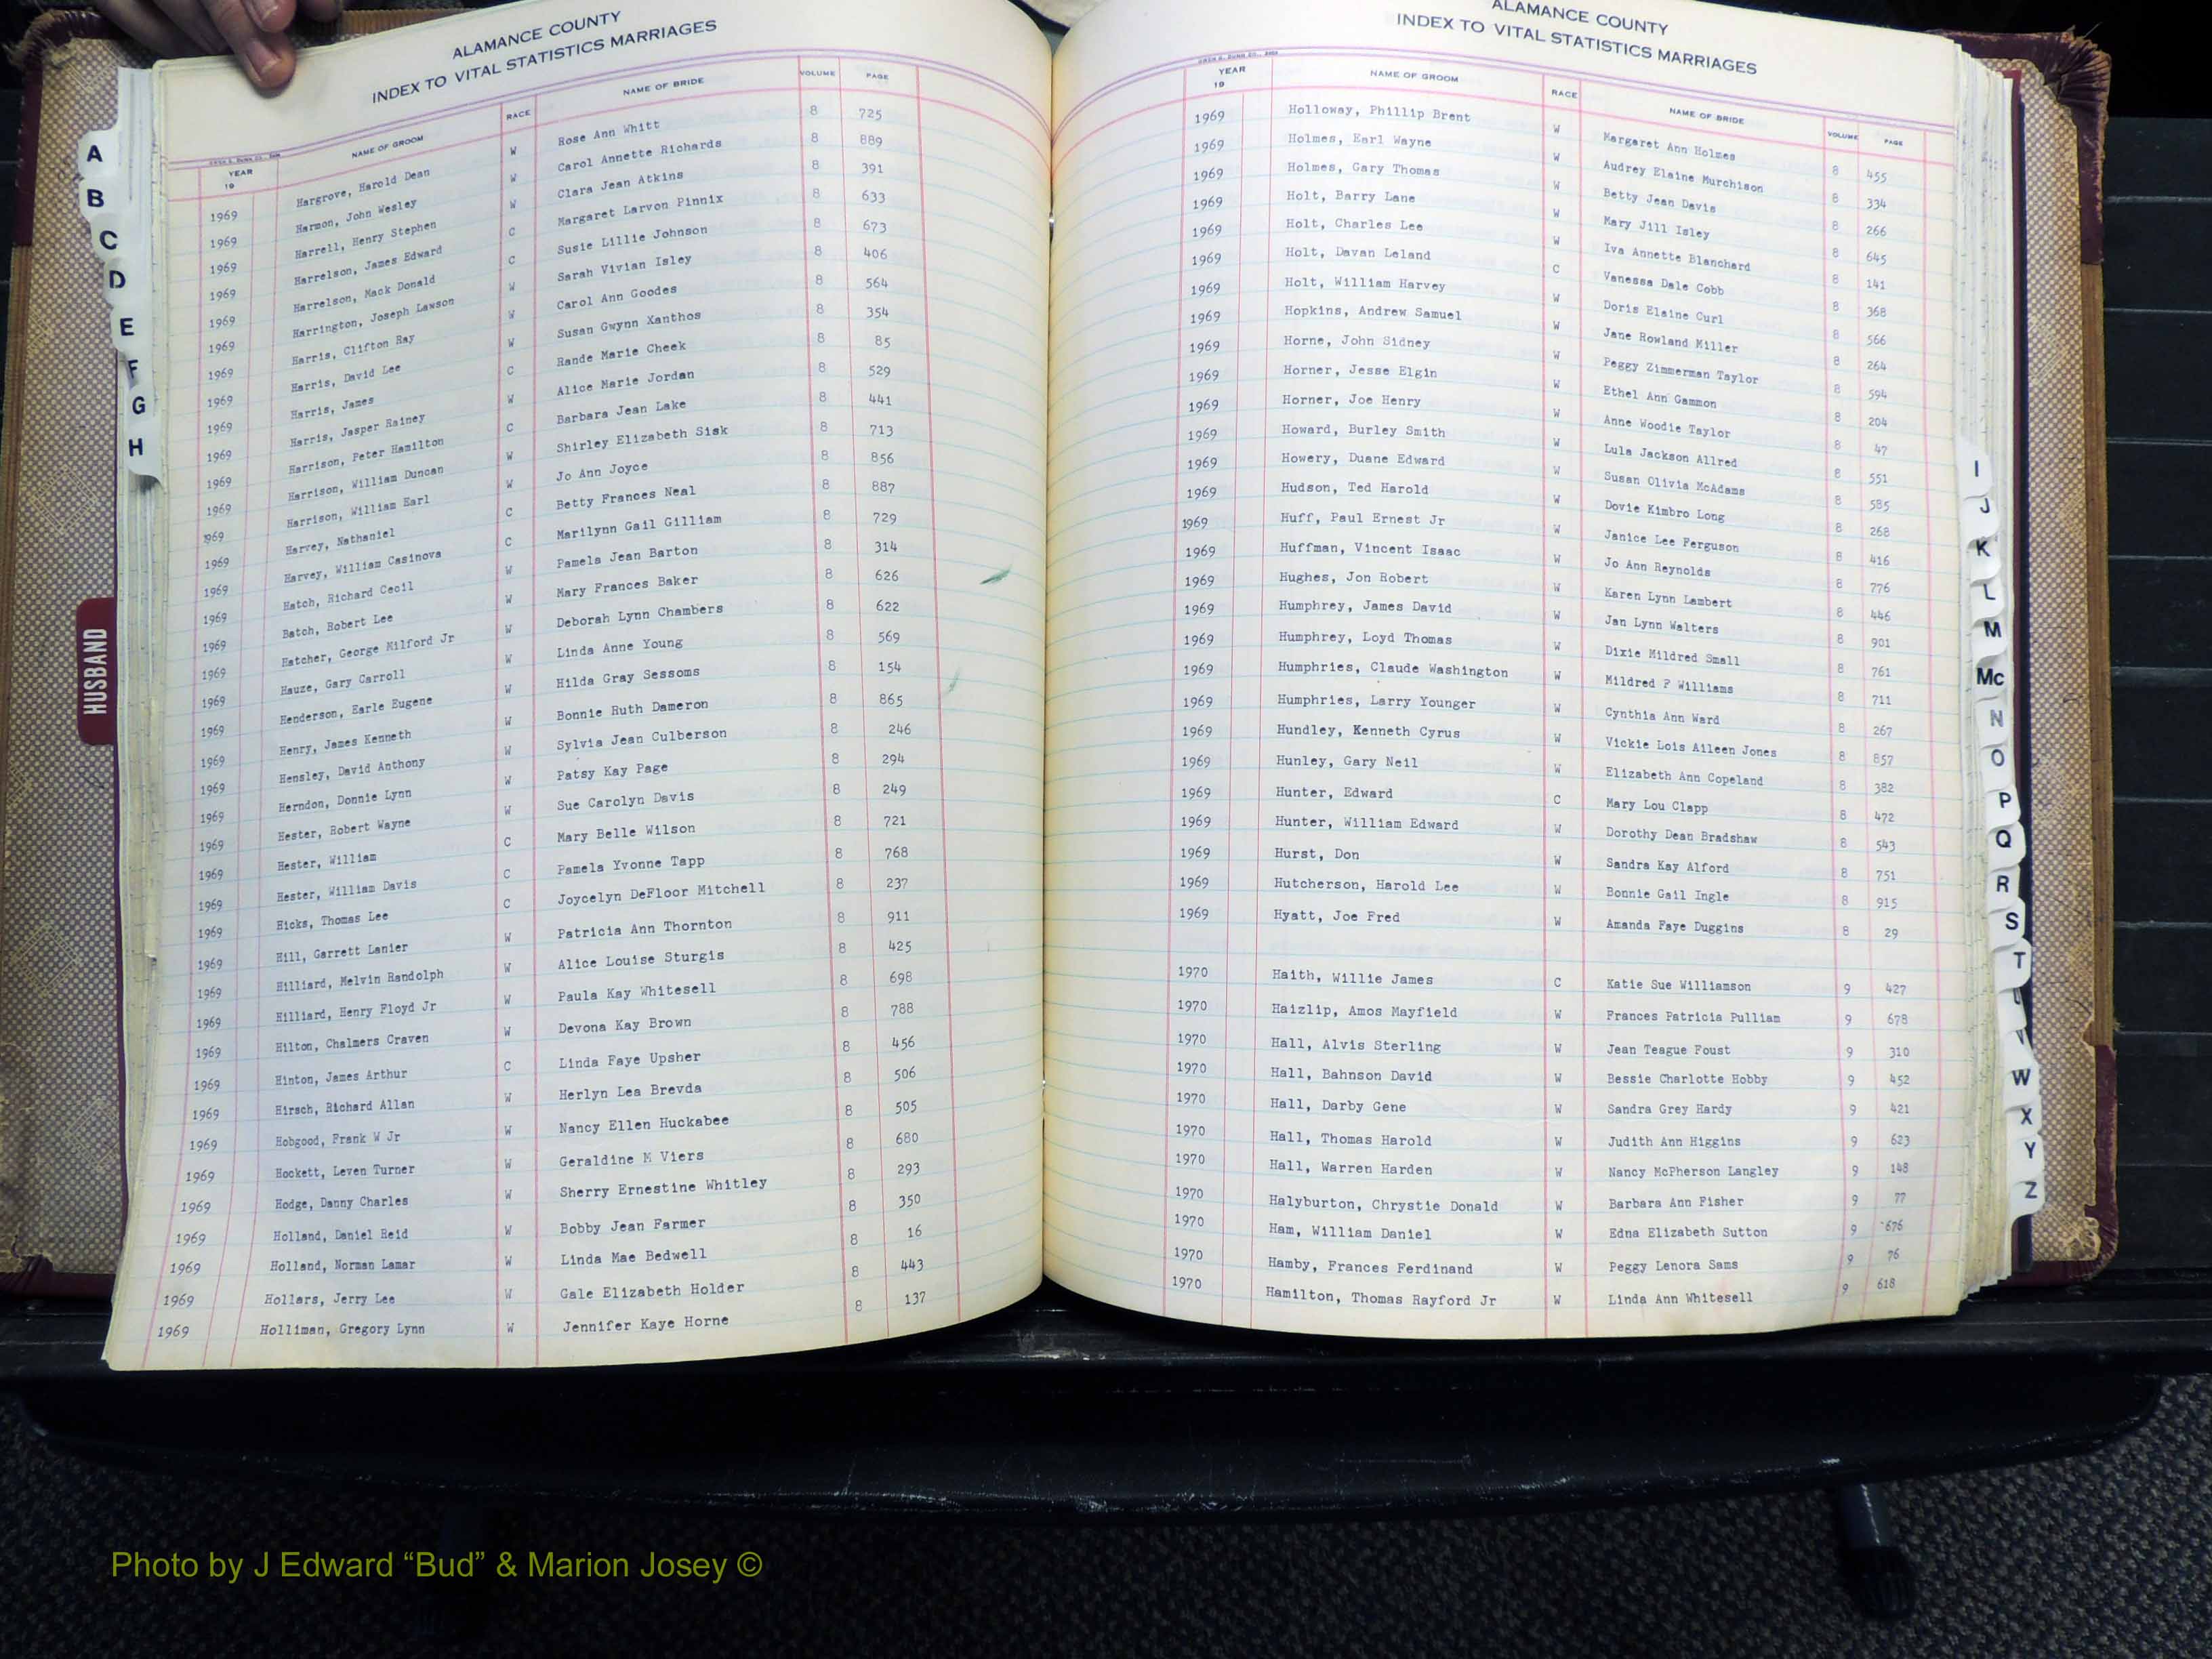 ALAMANCE COUNTY
INDEX TO VITAL STATISTICS MARRIAGES
YEAR 19 NAME OF GROOM RACE NAME OF BRIDE VOLUME PAGE
1969 Hargrove, Harold Dean W Rose Ann Whitt 8 725
1969 Harmon, John Wesley W Carol Annette Richards 8 889
1969 Harrell, Henry Stephen W Clara Jean Atkins 8 391
1969 Harrelson, James Edward C Margaret Larvon Pinnix 8 633
1969 Harrelson, Mack Donald C Susie Lillie Johnson 8 673
1969 Harrington, Joseph Lawson W Sarah Vivian Isley 8 406
1969 Harris, Clifton Ray W Carol Ann Goodes 8 564
1969 Harris, David Lee W Susan Gwynn Xanthos 8 354
1969 Harris, James C Rande Marie Cheek 8 85
1969 Harris, Jasper Rainey W Alice Marie Jordan 8 529
1969 Harrison, Peter Hamilton C Barbara Jean Lake 8 441
1969 Harrison, William Duncan W Shirley Elizabeth Sisk 8 713
1969 Harrison, William Earl W Jo Ann Joyce 8 856
1969 Harvey, Nathaniel C Betty Frances Neal 8 887
1969 Harvey, William Casinova C Marilynn Gail Gilliam 8 729
1969 Hatch, Richard Cecil W Pamela Jean Barton 8 314
1969 Hatch, Robert Lee W Mary Frances Baker 8 626
1969 Hatcher, George Milford Jr W Deborah Lynn Chambers 8 622
1969 Hauze, Gary Carroll W Linda Anne Young 8 569
1969 Henderson, Earle Eugene W Hilda Gray Sessoms 8 154
1969 Henry, James Kenneth W Bonnie Ruth Dameron 8 865
1969 Hensley, David Anthony W Sylvia Jean Culberson 8 246
1969 Herndon, Donnie Lynn W Patsy Kay Page 8 294
1969 Hester, Robert Wayne W Sue Carolyn Davis 8 249
1969 Hester, William C Mary Belle Wilson 8 721
1969 Hester, William Davis C Pamela Yvonne Tapp 8 768
1969 Hicks, Thomas Lee C Joycelyn DeFloor Mitchell 8 237
1969 Hill, Garrett Lanier W Patricia Ann Thornton 8 911
1969 Hilliard, Melvin Randolph W Alice Louise Sturgis 8 425
1969 Hilliard, Henry Floyd Jr W Paula Kay Whitesell 8 698
1969 Hilton, Chalmers Craven W Devona Kay Brown 8 788
1969 Hinton, James Arthur C Linda Faye Upsher 8 456
1969 Hirsch, Richard Allan W Herlyn Lea Brevda 8 506
1969 Hobgood, Frank W Jr W Nancy Ellen Huckabee 8 505
1969 Hockett, Leven Turner W Geraldine M Viers 8 680
1969 Hodge, Danny Charles W Sherry Ernestine Whitley 8 293
1969 Holland, Daniel Reid W Bobby Jean Farmer 8 350
1969 Holland, Norman Lamar W Linda Mae Bedwell 8 16
1969 Hollars, Jerry Lee W Gale Elizabeth Holder 8 443
1969 Holliman, Gregory Lynn W Jennifer Kaye Horne 8 137
A
B
C
D
E
F
G
H
HUSBAND
ALAMANCE COUNTY
INDEX TO VITAL STATISTICS MARRIAGES
YEAR 19 NAME OF GROOM RACE NAME OF BRIDE VOLUME PAGE
1969 Holloway, Phillip Brent W Margaret Ann Holmes 8 455
1969 Holmes, Earl Wayne W Audrey Elaine Murchison 8 334
1969 Holmes, Gary Thomas W Betty Jean Davis 8 266
1969 Holt, Barry Lane W Mary Jill Isley 8 645
1969 Holt, Charles Lee W Iva Annette Blanchard 8 141
1969 Holt, Davan Leland C Vanessa Dale Cobb 8 368
1969 Holt, William Harvey W Doris Elaine Curl 8 566
1969 Hopkins, Andrew Samuel W Jane Rowland Miller 8 264
1969 Horne, John Sidney W Peggy Zimmerman Taylor 8 594
1969 Horner, Jesse Elgin W Ethel Ann Gammon 8 204
1969 Horner, Joe Henry W Anne Woodie Taylor 8 47
1969 Howard, Burley Smith W Lula Jackson Allred 8 551
1969 Howery, Duane Edward W Susan Olivia McAdams 8 585
1969 Hudson, Ted Harold W Dovie Kimbro Long 8 268
1969 Huff, Paul Ernest Jr W Janice Lee Ferguson 8 416
1969 Huffman, Vincent Isaac W Jo Ann Reynolds 8 776
1969 Hughes, Jon Robert W Karen Lynn Lambert 8 446
1969 Humphrey, James David W Jan Lynn Walters 8 901
1969 Humphrey, Loyd Thomas W Dixie Mildred Small 8 761
1969 Humphries, Claude Washington W Mildred P Williams 8 711
1969 Humphries, Larry Younger W Cynthia Ann Ward 8 267
1969 Hundley, Kenneth Cyrus W Vickie Lois Aileen Jones 8 857
1969 Hunley, Gary Neil W Elizabeth Ann Copeland 8 382
1969 Hunter, Edward C Mary Lou Clapp 8 472
1969 Hunter, William Edward W Dorothy Dean Bradshaw 8 543
1969 Hurst, Don W Sandra Kay Alford 8 751
1969 Hutcherson, Harold Lee W Bonnie Gail Ingle 8 915
1969 Hyatt, Joe Fred W Amanda Faye Duggins 8 29
1970 Haith, Willie James C Katie Sue Williamson 9 427
1970 Haizlip, Amos Mayfield W Frances Patricia Pulliam 9 678
1970 Hall, Alvis Sterling W Jean Teague Foust 9 310
1970 Hall, Bahnson David W Bessie Charlotte Hobby 9 452
1970 Hall, Darby Gene W Sandra Grey Hardy 9 421
1970 Hall, Thomas Harold W Judith Ann Higgins 9 623
1970 Hall, Warren Harden W Nancy McPherson Langley 9 148
1970 Halyburton, Chrystie Donald W Barbara Ann Fisher 9 77
1970 Ham, William Daniel W Edna Elizabeth Sutton 9 676
1970 Hamby, Frances Ferdinand W Peggy Lenora Sams 9 76
1970 Hamilton, Thomas Rayford Jr W Linda Ann Whitesell 9 618
I
J
K
L
M
Mc
N
O
P
Q
R
S
T
U
V
W
X
Y
Z
Photo by J Edward “Bud” & Marion Josey ©